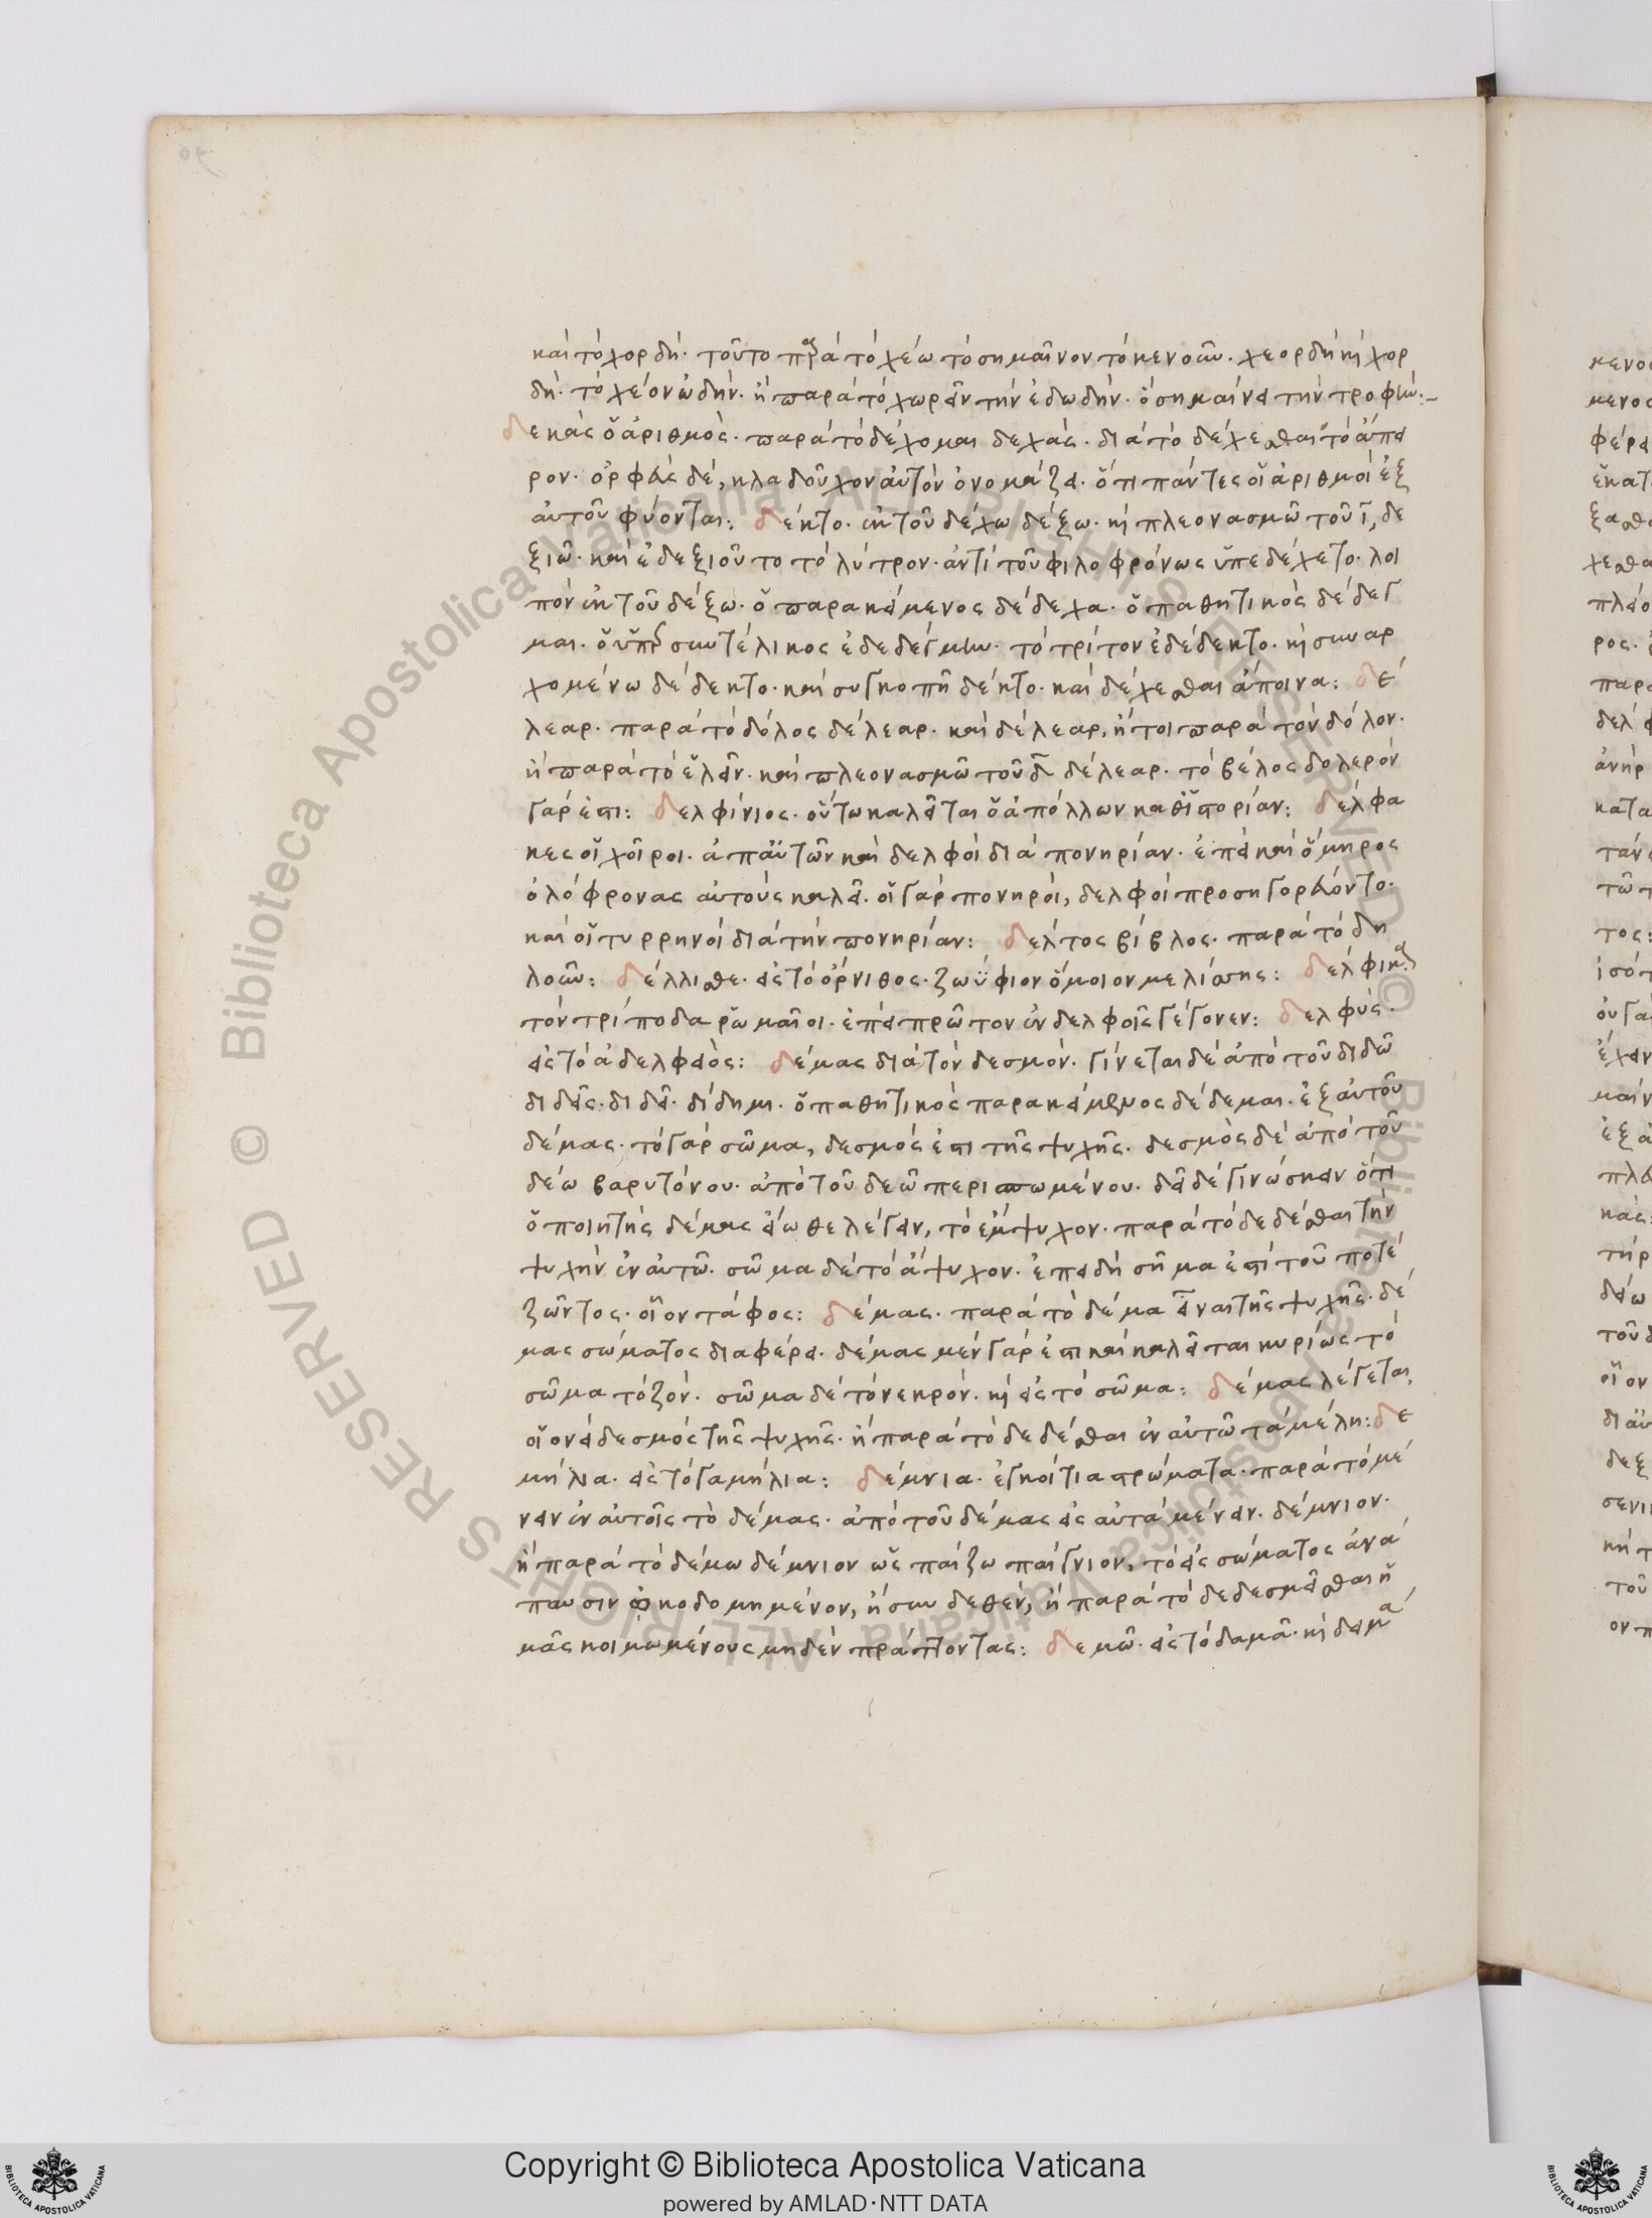 καὶ τὸ χορδή· τοῦτο παρὰ τὸ χέω τὸ σημαῖνον τὸ κενοῦν· χεορδὴ κὶ χορ
δή· τὸ χεόν ὠδήν· ἢ παρὰ τὸ χωρεῖν τὴν ἐδωδήν· ὃ σημαίνει τὴν τροφήν:–
δεκὰς ὁ ἀριθμὸς· παρὰ τὸ δέχομαι δεχὰς· διὰ τὸ δέχεσθαι τὸ ἄπει
ρον· ὀρφεὺς δέ, κλαδοῦχον αὐτὸν ὀνομάζει· ὅτι πάντες οἱ ἀριθμοὶ ἐξ
αὐτοῦ φύονται: δέκτο· ἐκ τοῦ δέχω δέξω· κὶ πλεονασμῶ τοῦ ῑ, δε
ξιῶ· καὶ ἐδεξιοῦτο τὸ λύτρον· ἀντὶ τοῦ φιλοφρόνως ὑπεδέχετο· λοι
πὸν ἐκ τοῦ δέξω· ὁ παρακείμενος δέδεχα· ὁ παθητικὸς δέδεγ
μαι· ὁ ὑπερσυντέλικος ἐδεδέγμην· τὸ τρίτον ἐδέδεκτο· κὶ συναρ
χομένω δέδεκτο· καὶ συγκοπῆ δέκτο· καὶ δέχεσθαι ἄποινα: δέ
λεαρ· παρὰ τὸ δόλος δέλεαρ· καὶ δέλεαρ, ἤτοι παρὰ τὸν δόλον·
ἢ παρὰ τὸ ἑλεῖν· καὶ πλεονασμῶ τοῦ δ̄ δέλεαρ· τὸ βέλος δολερὸν
γάρ ἐστι: δελφίνιος· οὕτω καλεῖται ὁ ἀπόλλων καθ' ἱστορίαν: δέλφα
κες οἱ χοῖροι· ἀπ' αὐτῶν καὶ δελφοὶ διὰ πονηρίαν· ἐπεὶ καὶ ὅμηρος
ὀλόφρονας αὐτοὺς καλεῖ· οἱ γὰρ πονηροὶ, δελφοὶ προσηγορεύοντο·
καὶ οἱ τυρρηνοὶ διὰ τὴν πονηρίαν: δέλτος βίβλος· παρὰ τὸ δη
λοῦν: δέλλιθε· εἰς τὸ ὄρνιθος· ζωΰφιον ὅμοιον μελίσσης: δέλφικα
τὸν τρίποδα ῥωμαῖοι· ἐπεὶ πρῶτον ἐν δελφοῖς γέγονεν: δελφύς·
εἰς τὸ ἀδελφειὸς: δέμας διὰ τὸν δεσμόν· γίνεται δὲ ἀπὸ τοῦ διδῶ
διδεῖς· διδεῖ· δίδημι· ὁ παθητικὸς παρακείμενος δέδεμαι· ἐξ αὐτοῦ
δέμας· τὸ γὰρ σῶμα, δεσμός ἐστι τῆς ψυχῆς· δεσμὸς δὲ ἀπὸ τοῦ
δέω βαρυτόνου· ἀπὸ τοῦ δεῶ περισπωμένου· δεῖ δὲ γινώσκειν ὅτι
ὁ ποιητὴς δέμας εἴωθε λέγειν, τὸ ἔμψυχον· παρὰ τὸ δεδέσθαι τὴν
ψυχὴν ἐν αὐτῶ· σῶμα δὲ τὸ ἄψυχον· ἐπειδὴ σῆμα ἐστὶ τοῦ ποτέ
ζῶντος· οἷον τάφος: δέμας· παρὰ τὸ δέμα εἶναι τῆς ψυχῆς· δέ
μας σώματος διαφέρει· δέμας μὲν γάρ ἐστι καὶ καλεῖται κυρίως τὸ
σῶμα τὸ ζόν· σῶμα δὲ τὸ νεκρόν· κὶ εἰς τὸ σῶμα: δέμας λέγεται,
οἱονεὶ δεσμὸς τῆς ψυχῆς· ἢ παρὰ τὸ δεδέσθαι ἐν αὐτῶ τὰ μέλη: δε
μήλια· εἰς τὸ γαμήλια: δέμνια· ἐγκοίτια στρώματα· παρὰ τὸ μέ
νειν ἐν αὐτοῖς τὸ δέμας· ἀπὸ τοῦ δέμας εἰς αὐτὰ μένειν· δέμνιον·
ἢ παρὰ τὸ δέμω δέμνιον ὡς παίζω παίγνιον, τὸ εἰς σώματος ἀνά
παυσιν οἰκοδομημένον, ἢ συνδεθέν, ἢ παρὰ τὸ δεδεσμεῖσθαι ἡ
μᾶς κοιμωμένους μηδὲν πράττοντας: δεμῶ· εἰς τὸ δαμᾶ· κὶ δειμα
Copyright © Biblioteca Apostolica Vaticana
powered by AMLAD·NTT DATA